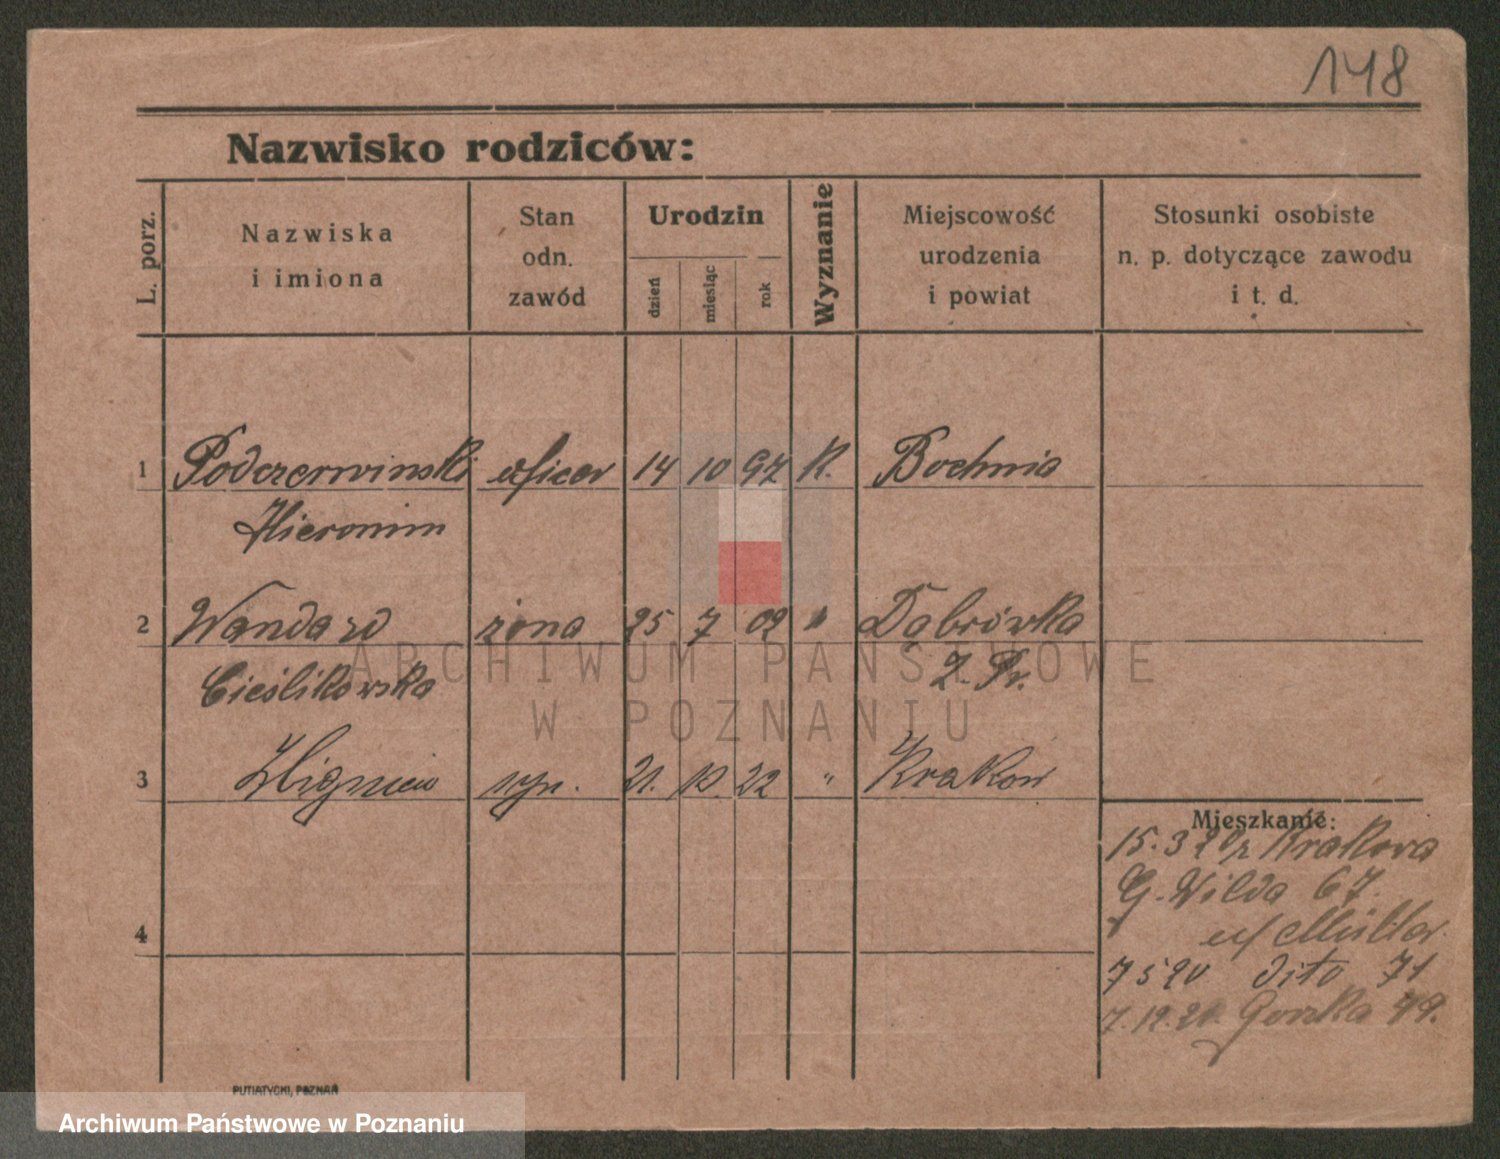 148
Nazwisko rodziców:
L. porz.
Nazwiska
i imiona
Stan
odn.
zawód
Urodzin
dzień
miesiąc
rok
Wyznanie
Miejscowość
urodzenia
i powiat
Stosunki osobiste
n. p. dotyczące zawodu
i t. d.
1 Podczerwinski oficer 14 10 97 K. Bochnia
Hieronim
2 Wanda zd żona 25 7 02 " Dąbrówka
Cieślikowska
3 Zbigniew syn. 21. 10. 22 " Krakow
4
Mieszkanie:
15.3 20 z Krakowa
G. Wilda 67.
7 5 20 dito 71
7.12.20. 49.
PUTIATYCKI, POZNAŃ
ARCHIWUM PAŃSTWOWE
W POZNANIU
Archiwum Państwowe w Poznaniu